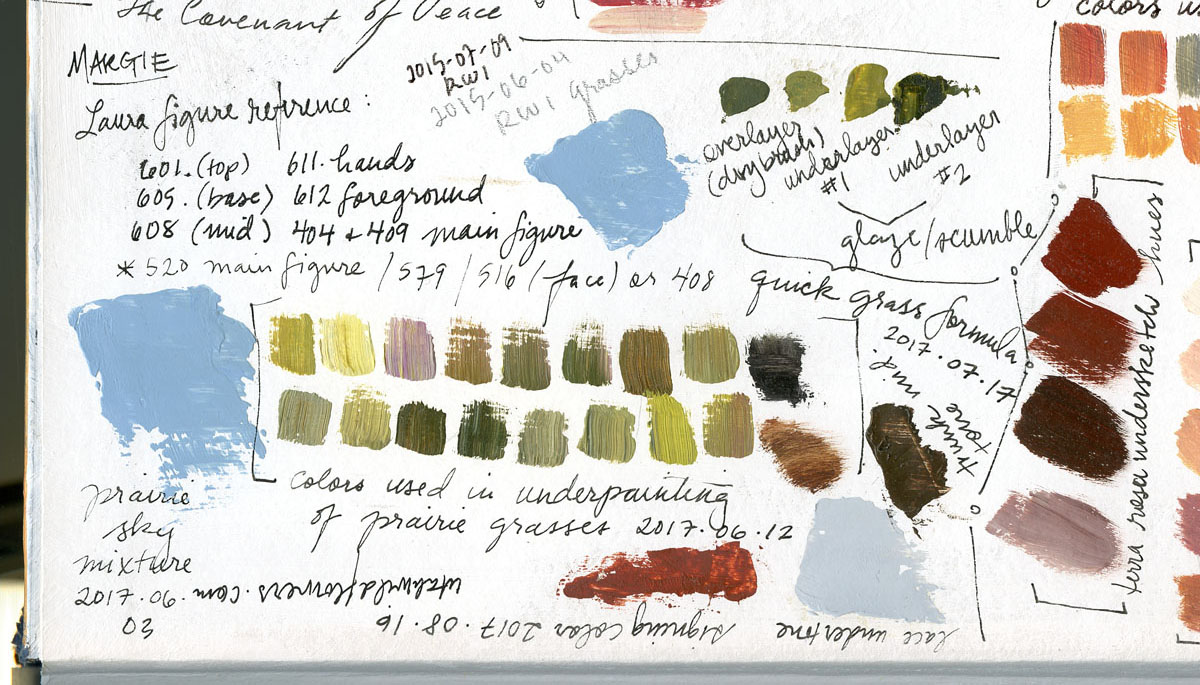 The Covenant of Peace
colors
MARGIE
2015-07-09
RW1
2015-06-04
RW1 grasses
Laura figure reference:
601. (top) 611. hands
605. (base) 612 foreground
608 (mid) 404 + 409 main figure
* 520 main figure / 579 / 516 (face) or 408
overlayer
(drybrush)
underlayer
#1
underlayer
#2
glaze/scumble
quick grass formula
2017.07.17
mid
tone
trunk
colors used in underpainting
of prairie grasses 2017.06.12
prairie
sky
mixture
2017.06.
03
utahwildflowers.com
signing color 2017.08.16
lace undertone
terra rosa undersketch hues